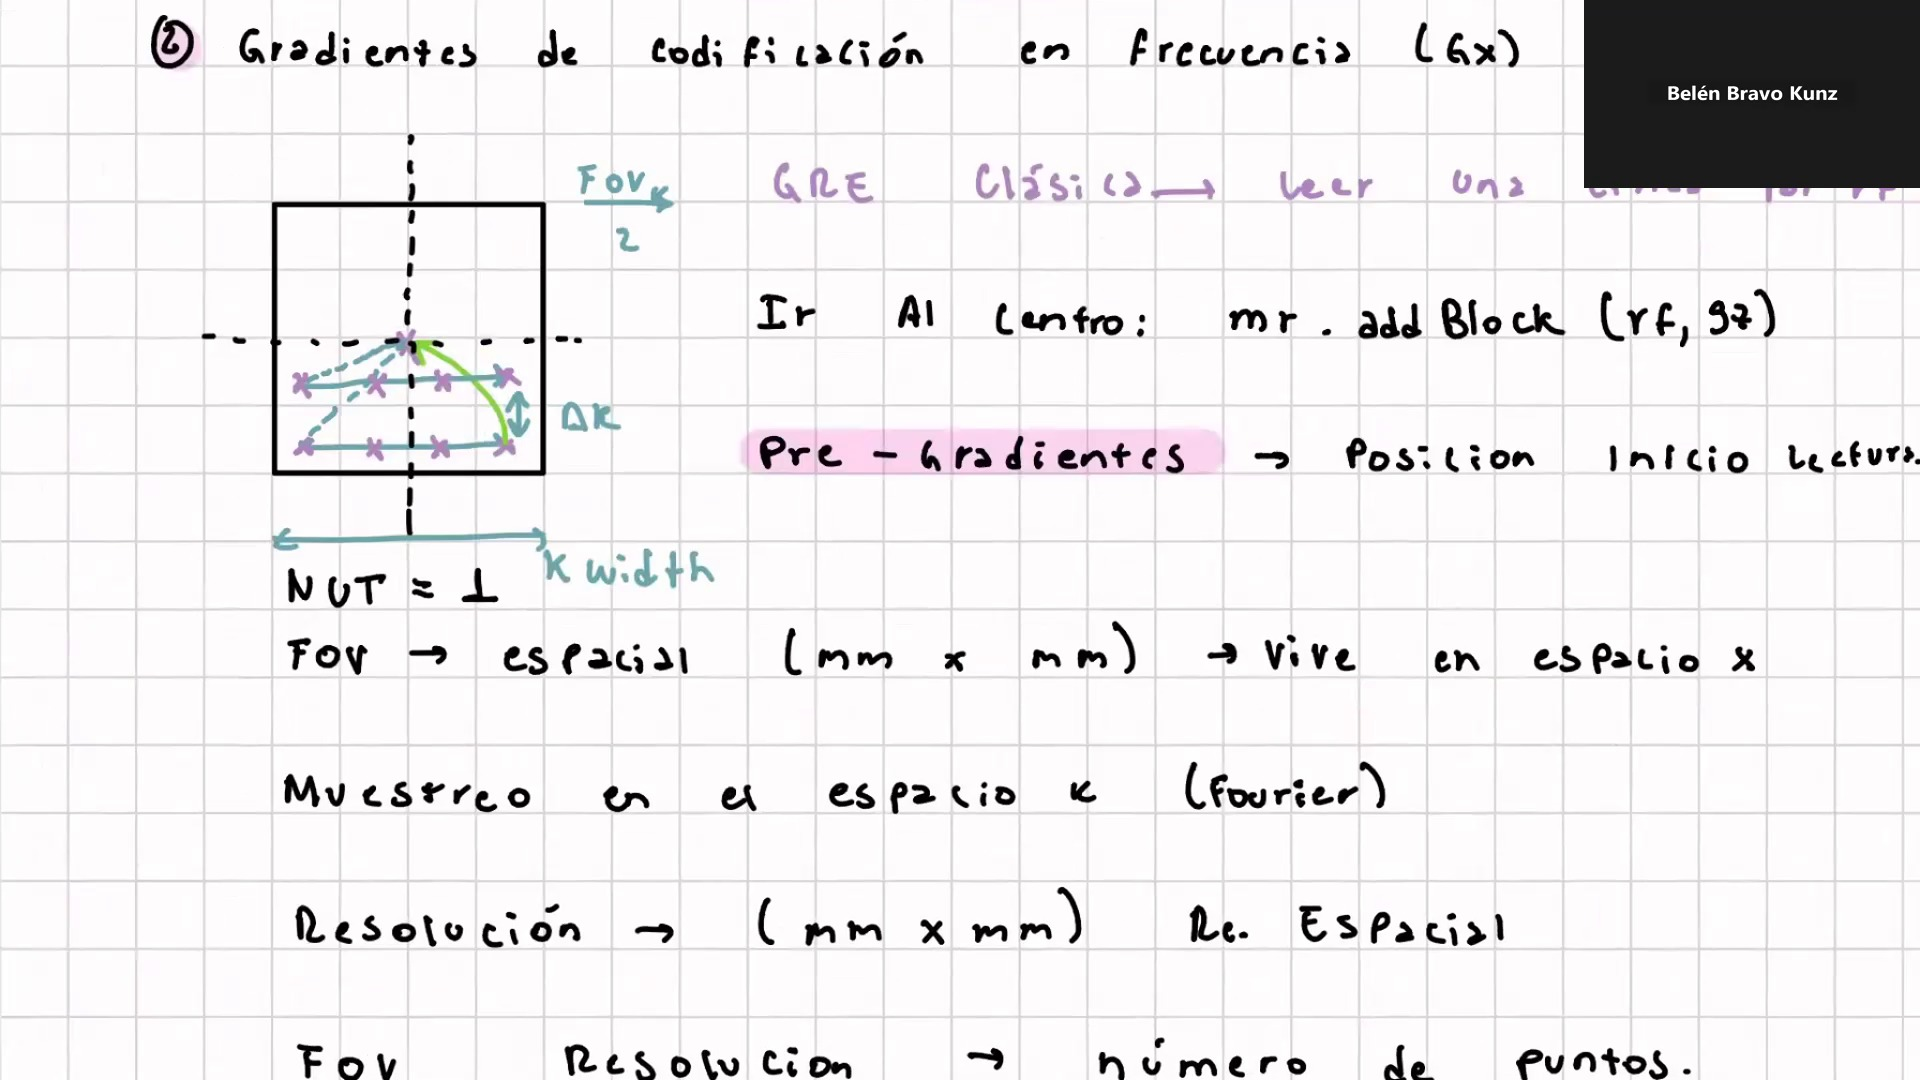 ② Gradientes de codificación en frecuencia (Gx)
Belén Bravo Kunz
FOVK
2
GRE Clásica → Leer una
Ir Al Centro: mr . add Block (rf, gz)
ΔK
Pre - Gradientes → Posicion Inicio Lectura.
K width
NUT ≈ 1
FOV → espacial (mm x mm) → vive en espacio x
Muestreo en el espacio k (Fourier)
Resolución → (mm x mm) Re. Espacial
FOV Resolucion → número de puntos.